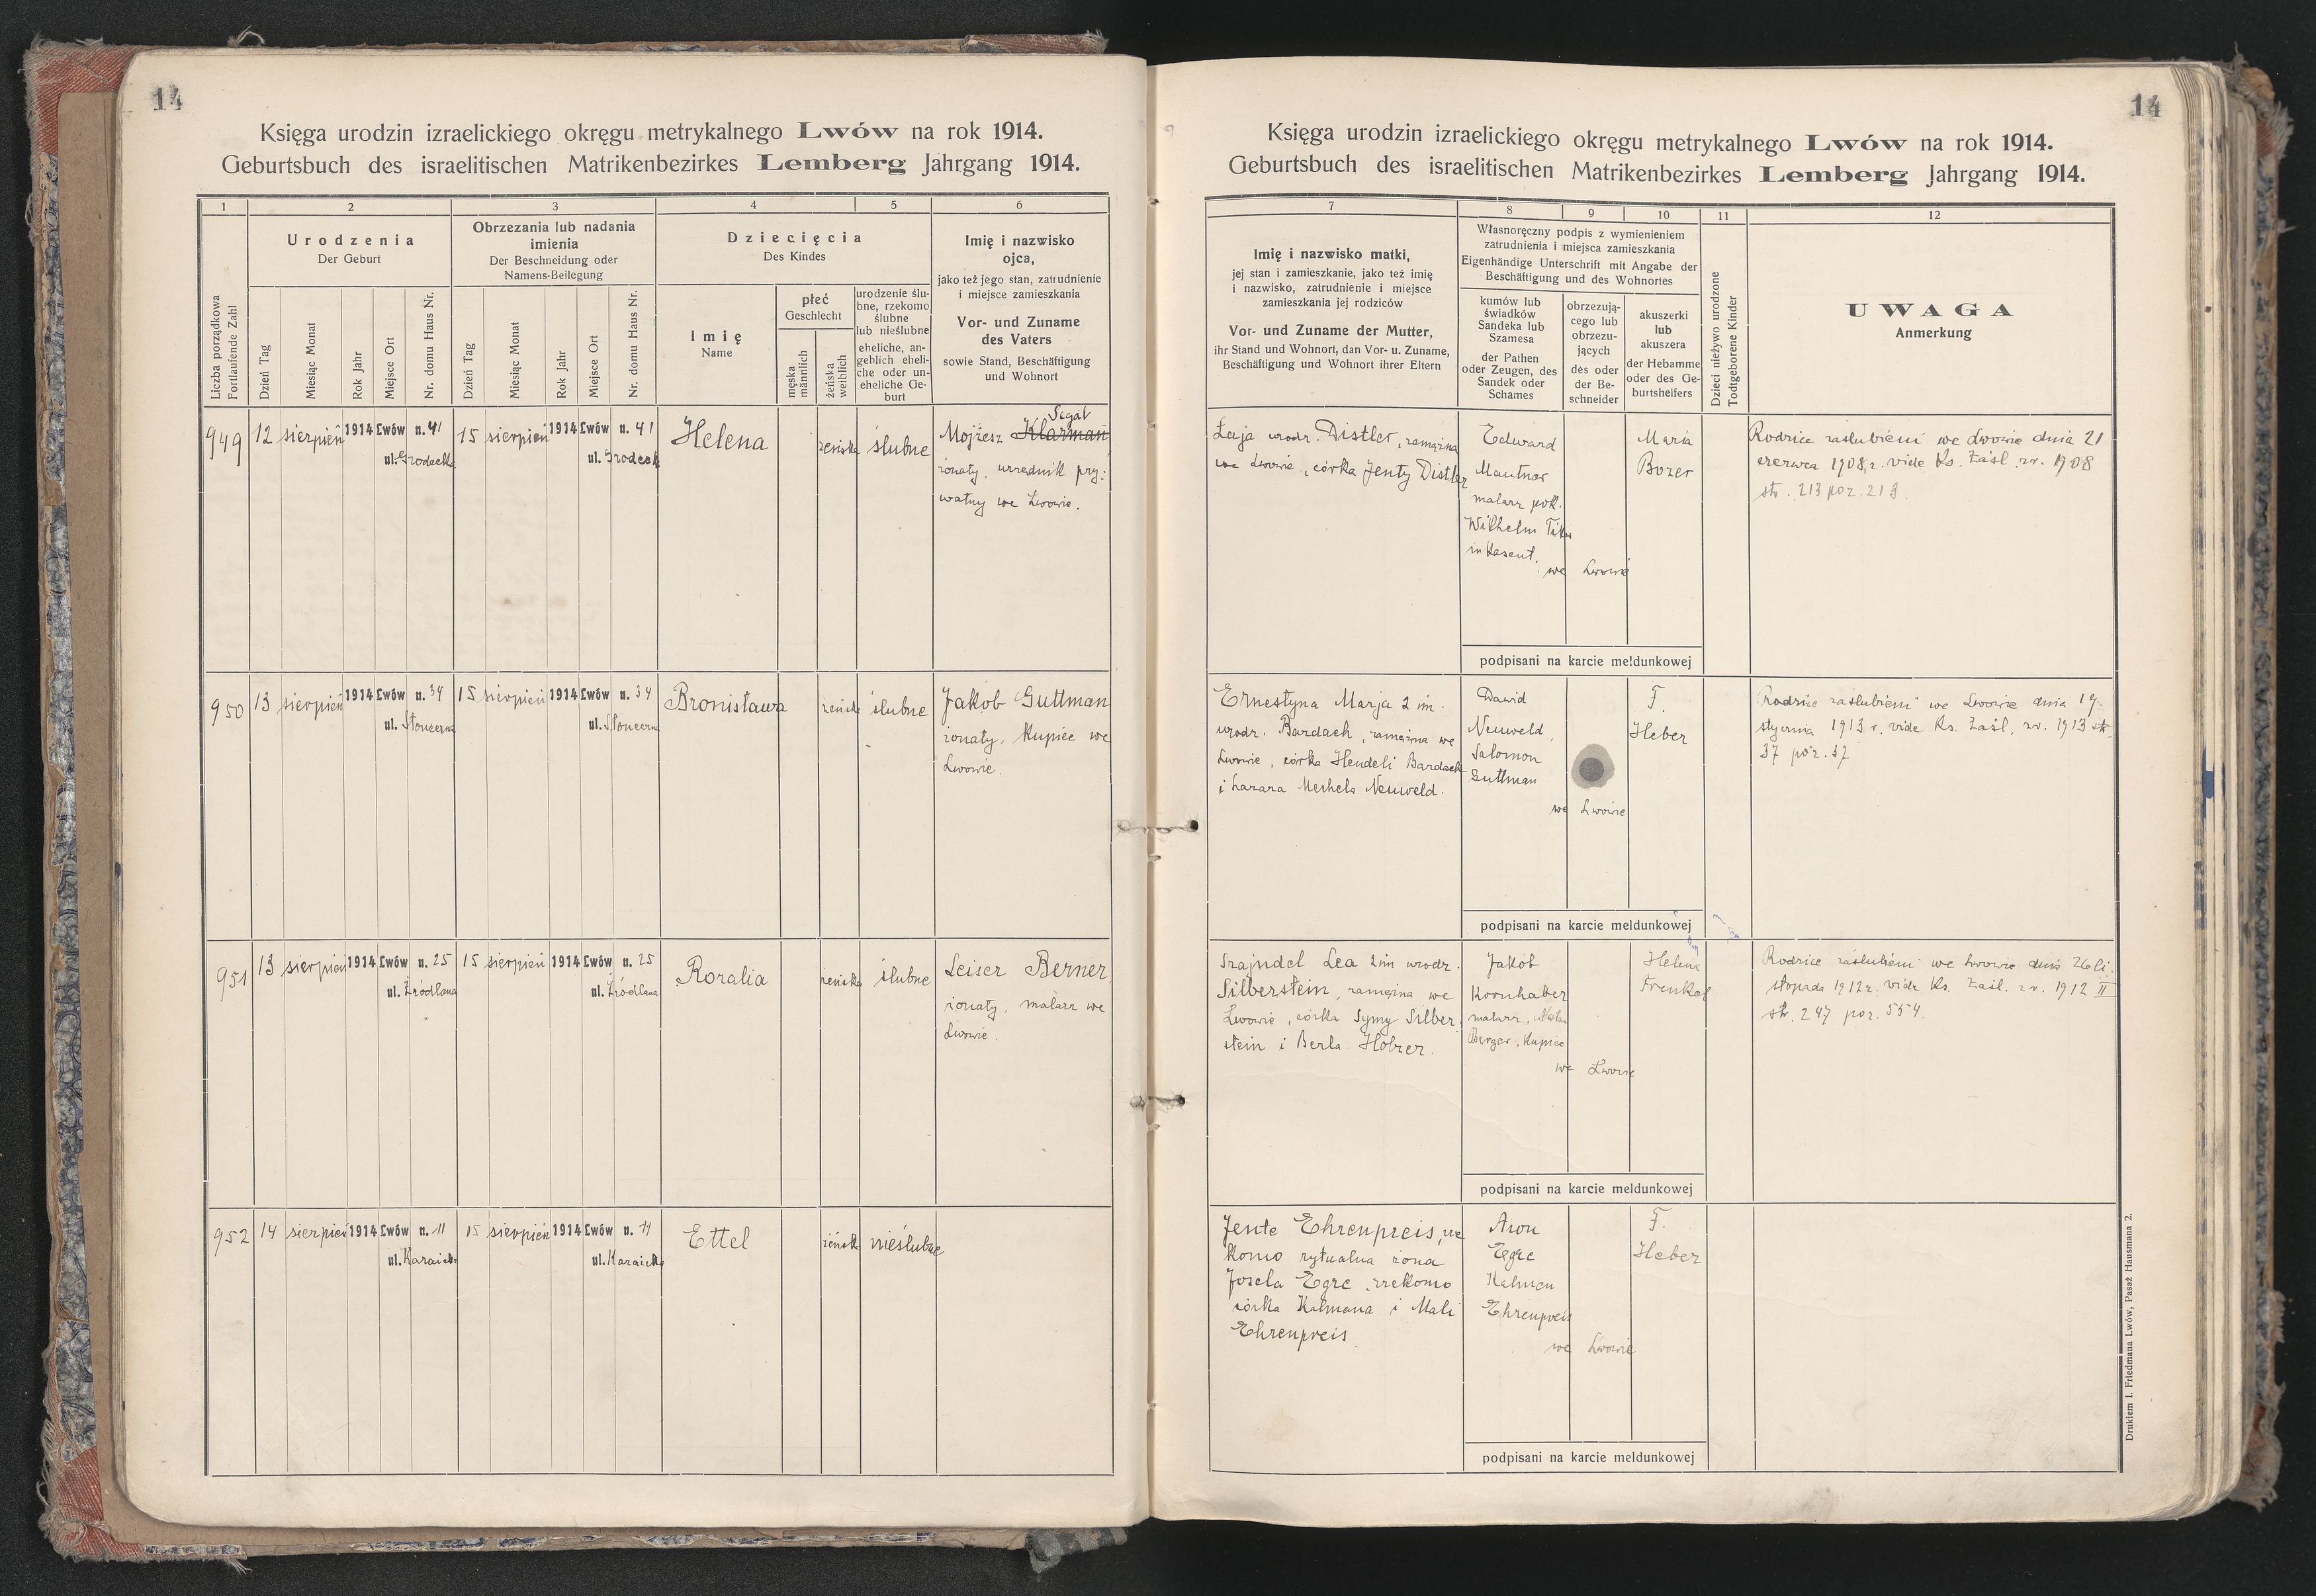 14
Księga urodzin izraelickiego okręgu metrykalnego Lwów na rok 1914.
Geburtsbuch des israelitischen Matrikenbezirkes Lemberg Jahrgang 1914.
1 2 3 4 5 6
Liczba porządkowa
Fortlaufende Zahl
Urodzenia
Der Geburt
Dzień Tag
Miesiąc Monat
Rok Jahr
Miejsce Ort
Nr. domu Haus Nr.
Obrzezania lub nadania
imienia
Der Beschneidung oder
Namens-Beilegung
Dzień Tag
Miesiąc Monat
Rok Jahr
Miejsce Ort
Nr. domu Haus Nr.
Dziecięcia
Des Kindes
Imię
Name
płeć
Geschlecht
męska
männlich
żeńska
weiblich
urodzenie ślu-
bne, rzekomo
ślubne
lub nieślubne
eheliche, an-
geblich eheli-
che oder un-
eheliche Ge-
burt
Imię i nazwisko
ojca,
jako też jego stan, zatrudnienie
i miejsce zamieszkania
Vor- und Zuname
des Vaters
sowie Stand, Beschäftigung
und Wohnort
949 12 sierpień 1914 Lwów n. 41 15 sierpień 1914 Lwów n. 41 Helena żeńska ślubne
ul. Grodecka ul. Grodeck
Segal
Mojżesz Klarman
żonaty, urzędnik pry-
watny we Lwowie.
950 13 sierpień 1914 Lwów n. 34 15 sierpień 1914 Lwów n. 34 Bronisława żeńska ślubne
ul. Słoneczna ul. Słoneczna
Jakób Guttman
żonaty, kupiec we
Lwowie.
951 13 sierpień 1914 Lwów n. 25 15 sierpień 1914 Lwów n. 25 Rozalia żeńska ślubne
ul. Źródlana ul. Źródlana
Leiser Berner
żonaty, malarz we
Lwowie.
952 14 sierpień 1914 Lwów n. 11 15 sierpień 1914 Lwów n. 11 Ettel żeńska nieślubne
ul. Karaick ul. Karaick
14
Księga urodzin izraelickiego okręgu metrykalnego Lwów na rok 1914.
Geburtsbuch des israelitischen Matrikenbezirkes Lemberg Jahrgang 1914.
7 8 9 10 11 12
Imię i nazwisko matki,
jej stan i zamieszkanie, jako też imię
i nazwisko, zatrudnienie i miejsce
zamieszkania jej rodziców
Vor- und Zuname der Mutter,
ihr Stand und Wohnort, dan Vor- u. Zuname,
Beschäftigung und Wohnort ihrer Eltern
Własnoręczny podpis z wymienieniem
zatrudnienia i miejsca zamieszkania
Eigenhändige Unterschrift mit Angabe der
Beschäftigung und des Wohnortes
kumów lub
świadków
Sandeka lub
Szamesa
der Pathen
oder Zeugen, des
Sandek oder
Schames
obrzezują-
cego lub
obrzezu-
jących
des oder
der Be-
schneider
akuszerki
lub
akuszera
der Hebamme
oder des Ge-
burtshelfers
Dzieci nieżywo urodzone
Todtgeborene Kinder
UWAGA
Anmerkung
Łaja urodz. Distler, zamężna
we Lwowie, córka Jenty Distler
Edward
Mautner
malarz pok.
Wilhelm
inkasent.
we Lwowie
Maria
Bozer
Rodzice zaślubieni we Lwowie dnia 21
czerwca 1908 r. vide Ks. Zaśl. zr. 1908
str. 213 poz. 213
podpisani na karcie meldunkowej
Ernestyna Marja 2 im.
urodz. Bardach, zamężna we
Lwowie, córka Hendeli Bardach
i Lazara Mechela Neuweld.
Dawid
Neuweld,
Salomon
Guttman
we Lwowie
F.
Heber
Rodzice zaślubieni we Lwowie dnia 19
stycznia 1913 r. vide Ks. Zaśl. zr. 1913 str.
37 poz. 37
podpisani na karcie meldunkowej
Szajndel Lea 2 im urodz.
Silberstein, zamężna we
Lwowie, córka Symy Silber
stein i Berla Holzer.
Jakób
Kornhaber
malarz,
Berger, kupiec
we Lwowie
Helena
Frenkel
Rodzice zaślubieni we Lwowie dnia 26 li-
stopada 1912 r. vide Ks. Zaśl. zr. 1912 II
str. 247 poz. 554.
podpisani na karcie meldunkowej
Jente Ehrenpreis, rze
komo rytualna żona
Josela Egre, rzekomo
córka Kalmana i Mali
Ehrenpreis
Aron
Egre
Kalman
Ehrenpreis
we Lwowie
F.
Heber
podpisani na karcie meldunkowej
Drukiem I. Friedmana Lwów, Pasaż Hausmana 2.